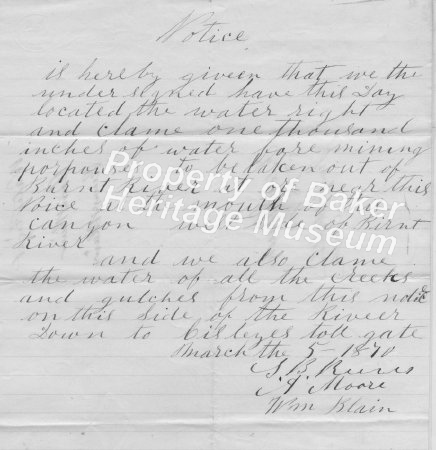 Notice
is hereby givein that we the
under signed have this Day
located the water right
and clame one thousand
inches of water fore mining
porpouses to be taken out of
Burnt River at or near this
at the mouth of the
canyon west side of Burnt
River
and we also clame
the water of all the creeks
and gulches from this notice
on this side of the Riveer
Down to toll gate
March the 5 1870
S. B.
Moore
Wm Blain
Property of Baker
Heritage Museum